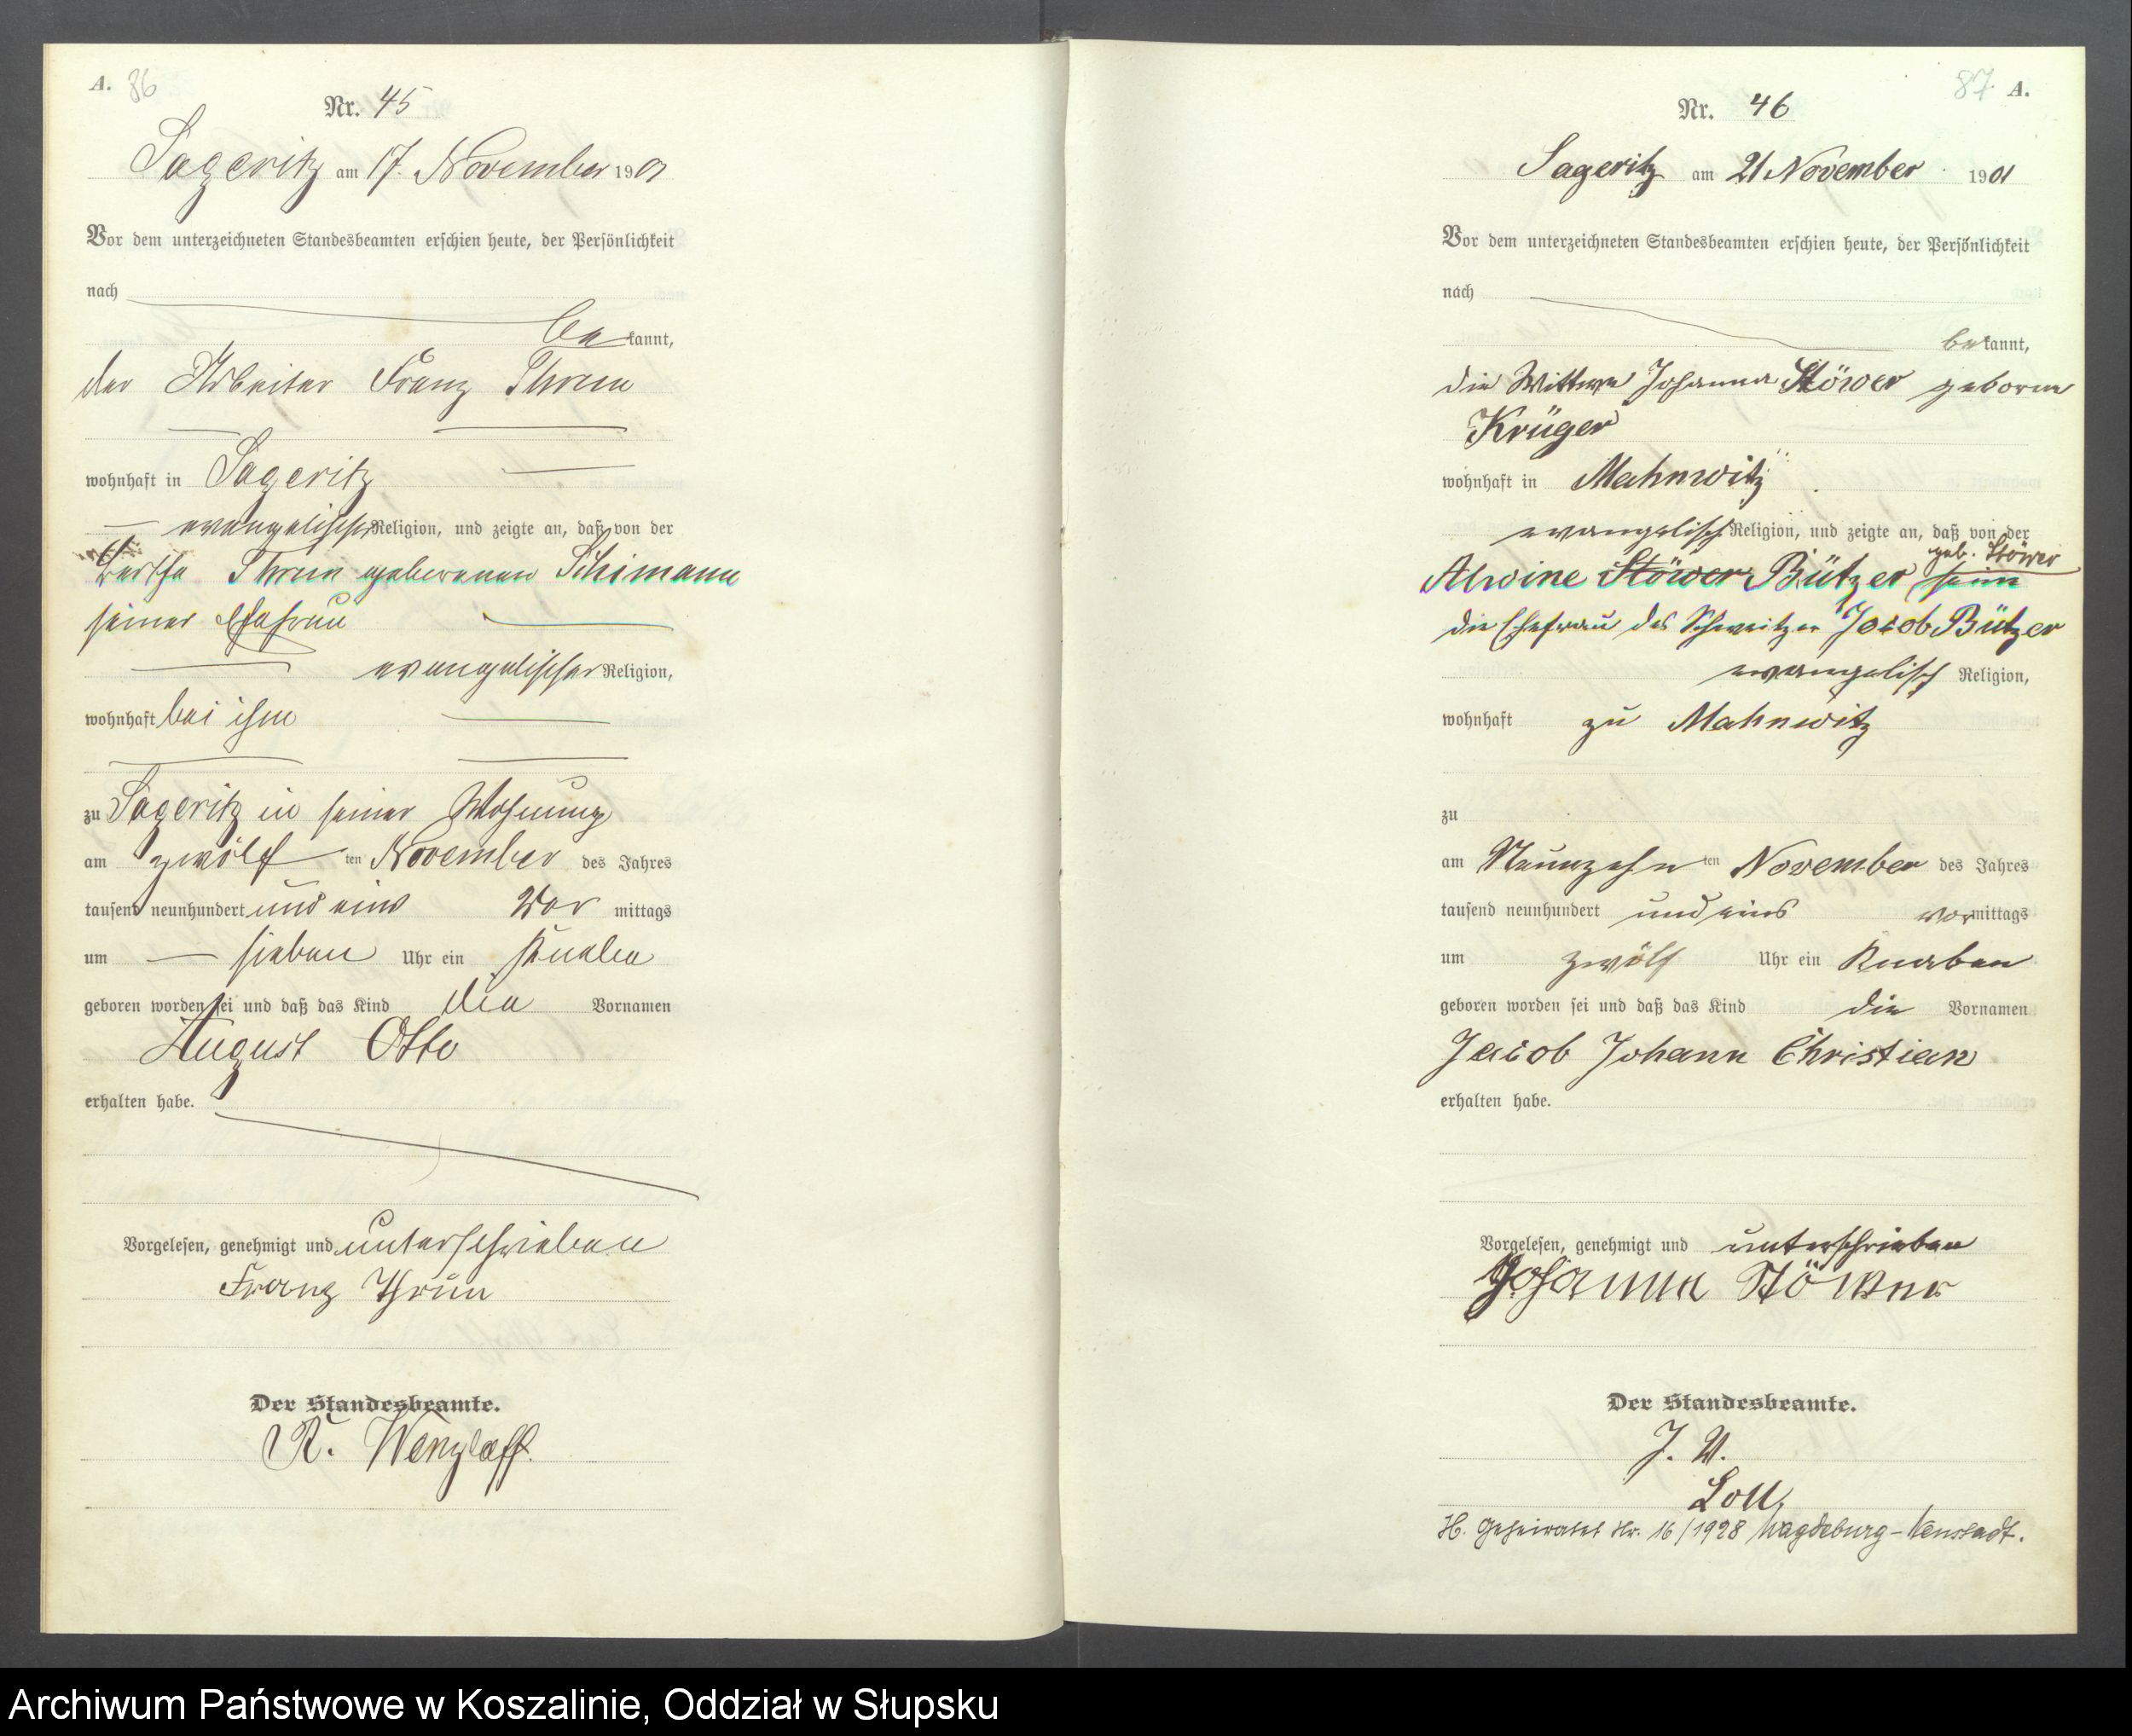 A. 86
Nr. 45
Sageritz am 17. November 1901
Vor dem unterzeichneten Standesbeamten erschien heute, der Persönlichkeit
nach
bekannt,
der Arbeiter Franz Thrun
wohnhaft in Sageritz
evangelischer Religion, und zeigte an, daß von der
Bertha Thrun geborenen Schimann
seiner Ehefrau
evangelischer Religion,
wohnhaft bei ihm
zu Sageritz in seiner Wohnung
am zwölf ten November des Jahres
tausend neunhundert und eins Vor mittags
um sieben Uhr ein Knabe
geboren worden sei und daß das Kind die Vornamen
August Otto
erhalten habe.
Vorgelesen, genehmigt und unterschrieben
Franz Thrun
Der Standesbeamte.
R. Wenzlaff.
87 A.
Nr. 46
Sageritz am 21 November 1901
Vor dem unterzeichneten Standesbeamten erschien heute, der Persönlichkeit
nach
bekannt,
die Wittwe Johanna Stöwer geborne
Krüger
wohnhaft in Mahnwitz
evangelisch Religion, und zeigte an, daß von der
geb. Stöwer
Alwine Stöwer Bützer
die Ehefrau des Schweitzer Jacob Bützer
evangelisch Religion,
wohnhaft zu Mahnwitz
zu
am Neunzehn ten November des Jahres
tausend neunhundert und eins vormittags
um zwölf Uhr ein Knaben
geboren worden sei und daß das Kind die Vornamen
Jacob Johann Christian
erhalten habe.
Vorgelesen, genehmigt und unterschrieben
Johanna Stöwer
Der Standesbeamte.
J. V.
Loll,
H. Geheiratet Nr. 16/1928 Magdeburg-Neustadt.
Archiwum Państwowe w Koszalinie, Oddział w Słupsku